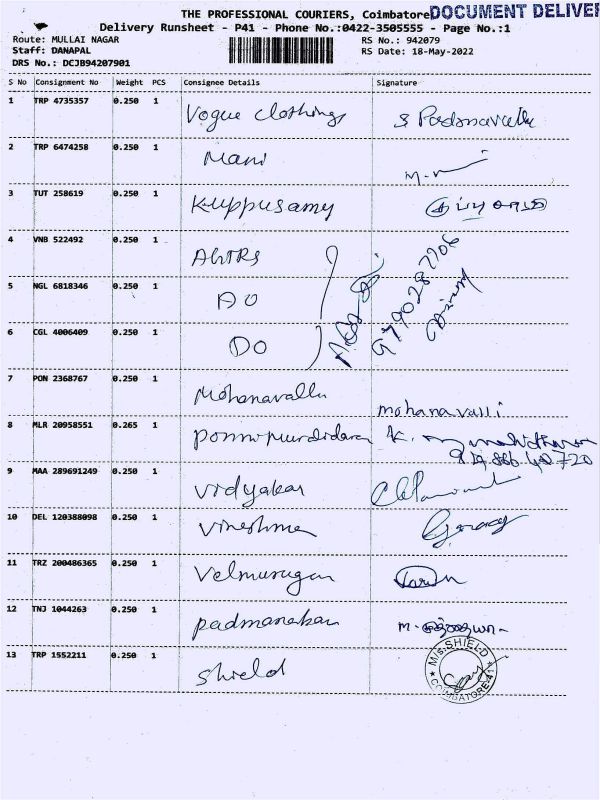 THE PROFESSIONAL COURIERS, Coimbatore DOCUMENT DELIVER
Delivery Runsheet - P41 - Phone No.:0422-3505555 - Page No.:1
Route: MULLAI NAGAR RS No.: 942079
Staff: DANAPAL RS Date: 18-May-2022
DRS No.: DCJB94207901
S No Consignment No Weight PCS Consignee Details Signature
1 TRP 4735357 0.250 1 Vogue clothings
2 TRP 6474258 0.250 1 Mani
3 TUT 258619 0.250 1 Kuppusamy
4 VNB 522492 0.250 1
5 NGL 6818346 0.250 1 DO
6 CGL 4006409 0.250 1 DO
7 PON 2368767 0.250 1 Mohanavalli mohanavalli
8 MLR 20958551 0.265 1
9 MAA 289691249 0.250 1 vidyakar
10 DEL 120388098 0.250 1
11 TRZ 200486365 0.250 1 Velmurugan
12 TNJ 1044263 0.250 1 padmanaban
13 TRP 1552211 0.250 1 Shield
M/s. SHIELD
COIMBATORE-41